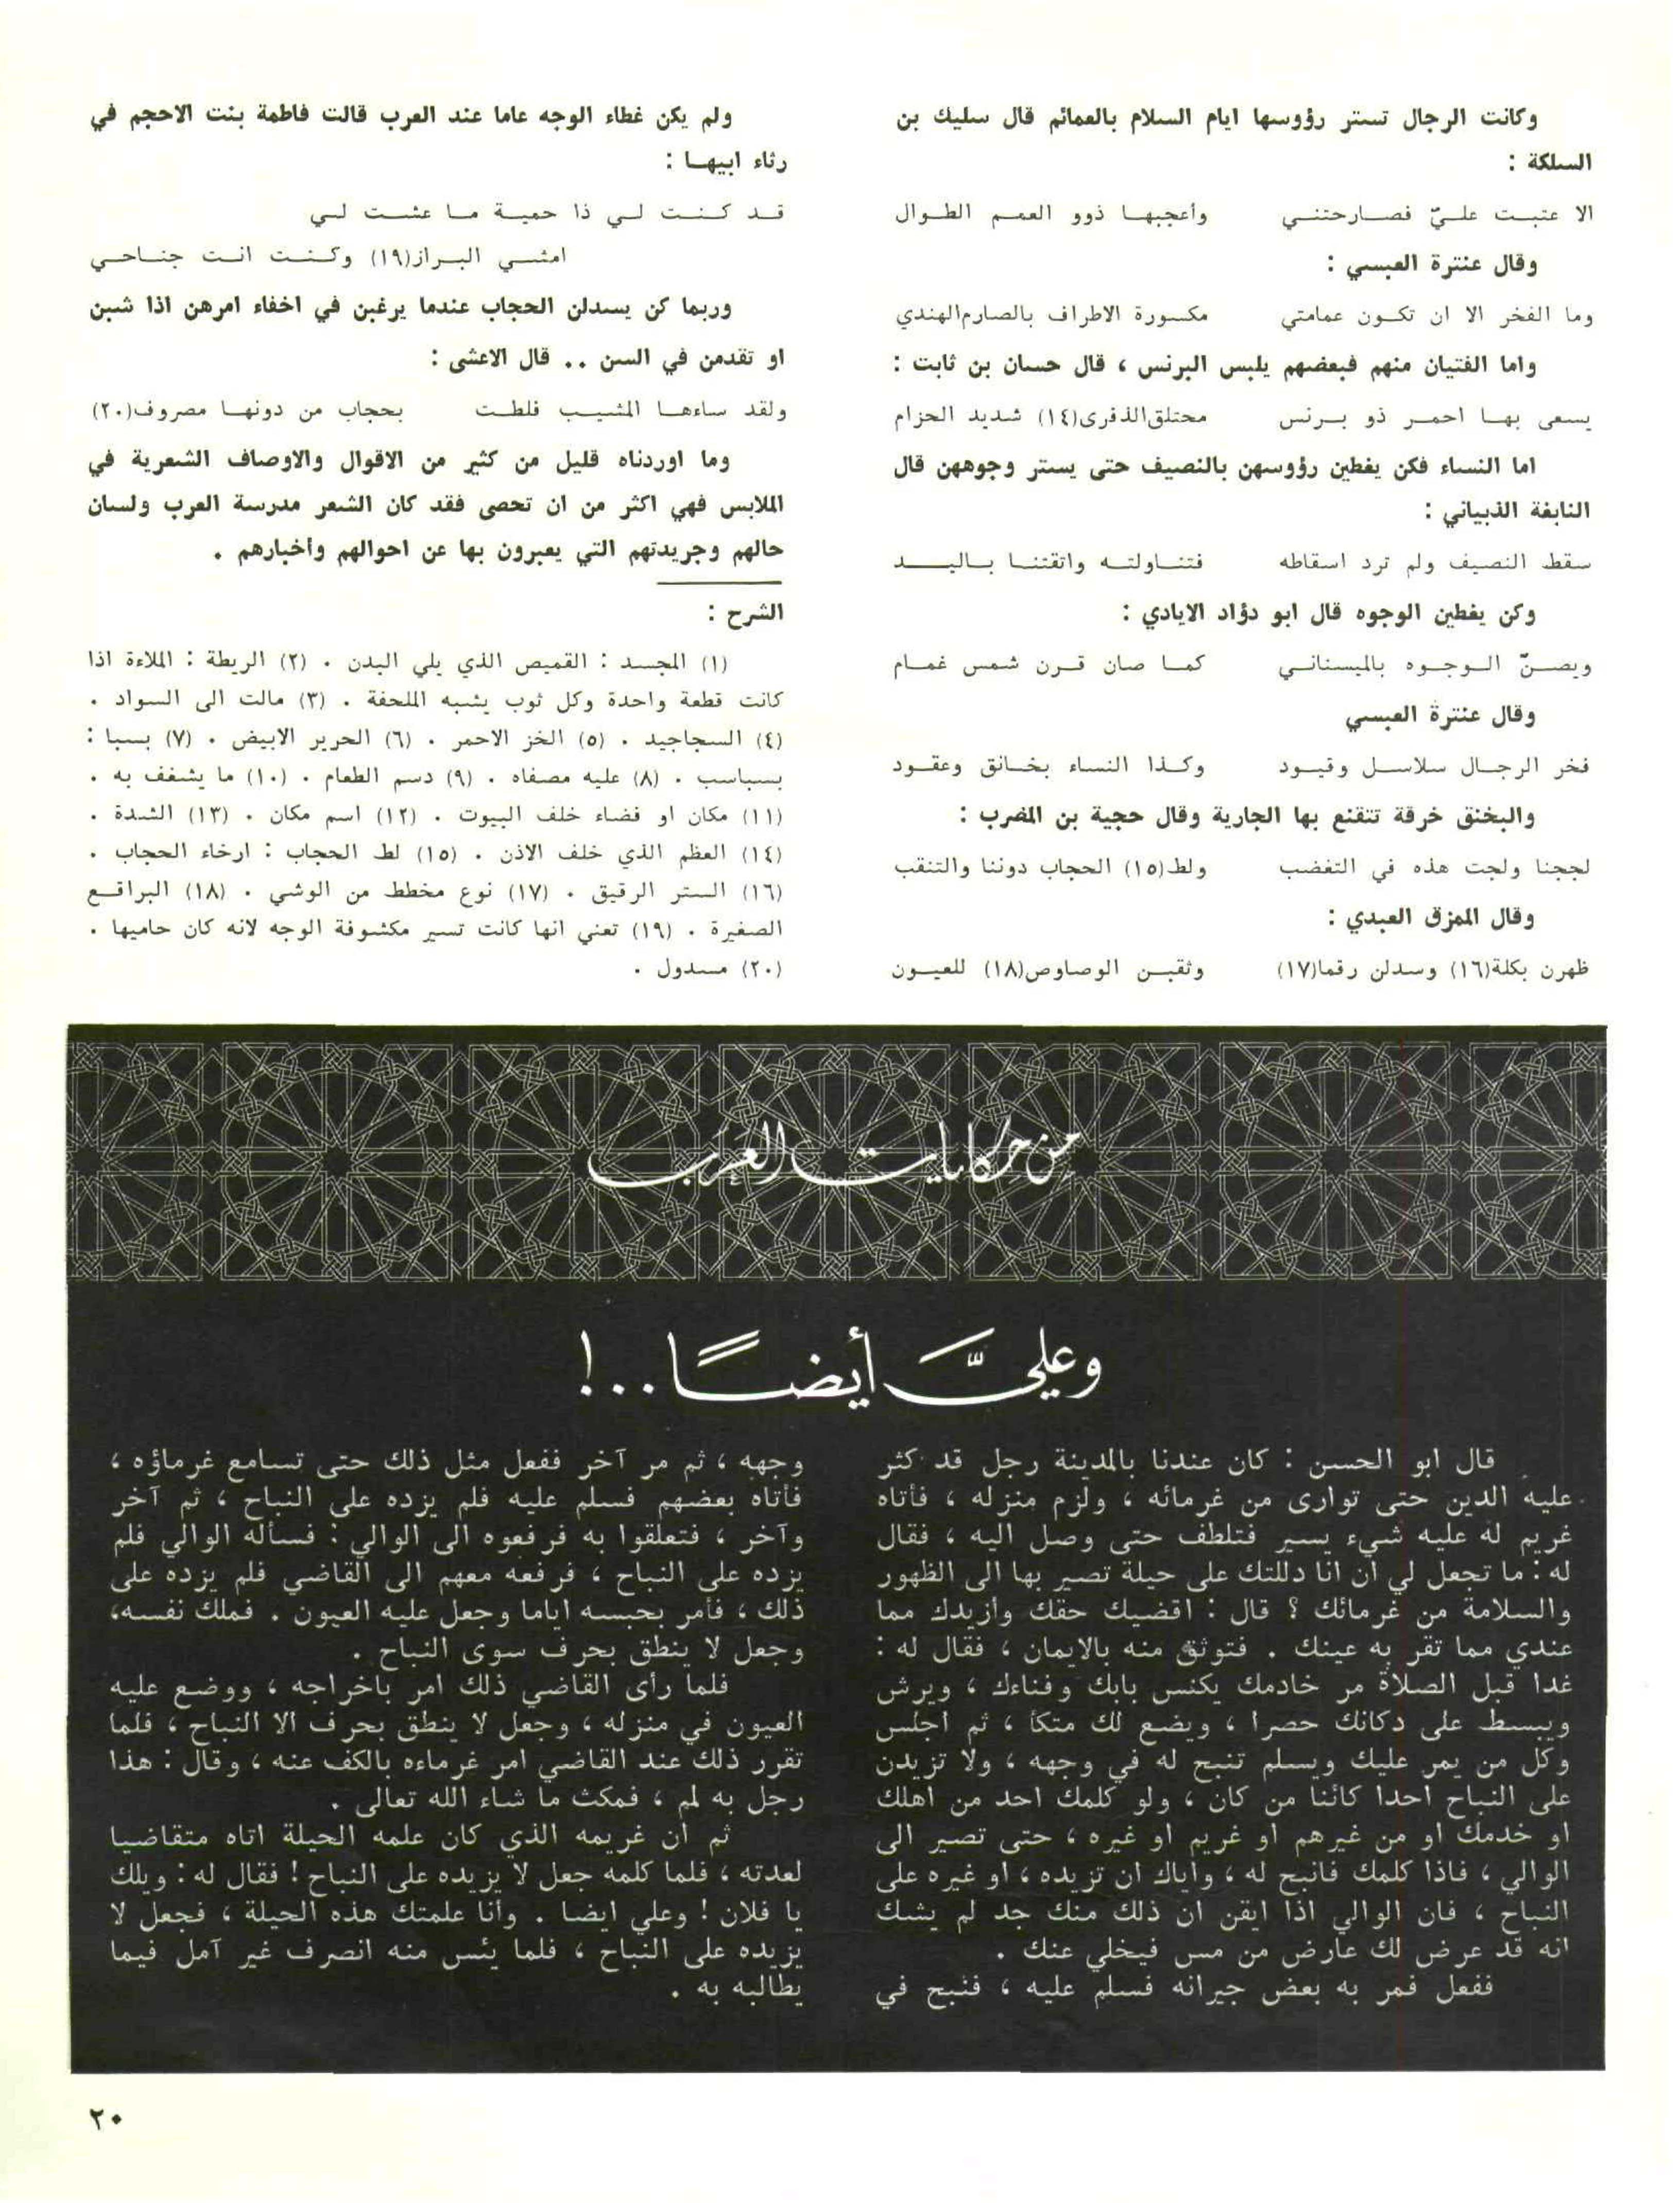 وكانت الرجال تستر رؤوسها ايام السلام بالعمائم قال سليك بن
السلكة :
الا عتبـت علـيّ فصـارحتنـي وأعجبهـا ذوو العمـم الطـوال
وقال عنترة العبسي :
وما الفخر الا ان تكـون عمامتي مكسورة الاطراف بالصارم الهندي
واما الفتيان منهم فبعضهم يلبس البرنس ، قال حسان بن ثابت :
يسعى بهـا احمـر ذو بـرنس محتلق الذفرى(١٤) شديد الحزام
اما النساء فكن يغطين رؤوسهن بالنصيف حتى يستر وجوههن قال
النابغة الذبياني :
سقط النصيف ولم ترد اسقاطه فتنـاولتـه واتقتنـا بـاليـــد
وكن يغطين الوجوه قال ابو دؤاد الايادي :
ويصـنّ الـوجـوه بالميسنانـي كمـا صان قـرن شمس غمـام
وقال عنترة العبسي
فخر الرجـال سلاسـل وقيـود وكـذا النساء بخـانق وعقـود
والبخنق خرقة تتقنع بها الجارية وقال حجية بن المضرب :
لججنا ولجت هذه في التغضب ولط(١٥) الحجاب دوننا والتنقب
وقال الممزق العبدي :
ظهرن بكلة(١٦) وسدلن رقما(١٧) وثقبـن الوصاوص(١٨) للعيـون
ولم يكن غطاء الوجه عاما عند العرب قالت فاطمة بنت الاحجم في
رثاء ابيهـا :
قـد كـنـت لـي ذا حميـة مـا عشـت لـي
امشـي البـراز(١٩) وكـنـت انـت جنـاحـي
وربما كن يسدلن الحجاب عندما يرغبن في اخفاء امرهن اذا شبن
او تقدمن في السن .. قال الاعشى :
ولقد ساءهـا المشيـب فلطـت بحجاب من دونهـا مصروف(٢٠)
وما اوردناه قليل من كثير من الاقوال والاوصاف الشعرية في
الملابس فهي اكثر من ان تحصى فقد كان الشعر مدرسة العرب ولسان
حالهم وجريدتهم التي يعبرون بها عن احوالهم وأخبارهم .
الشرح :
(١) المجسد : القميص الذي يلي البدن . (٢) الريطة : الملاءة اذا
كانت قطعة واحدة وكل ثوب يشبه الملحفة . (٣) مالت الى السواد .
(٤) السجاجيد . (٥) الخز الاحمر . (٦) الحرير الابيض . (٧) بسبا :
بسباسب . (٨) عليه مصفاه . (٩) دسم الطعام . (١٠) ما يشغف به .
(١١) مكان او فضاء خلف البيوت . (١٢) اسم مكان . (١٣) الشدة .
(١٤) العظم الذي خلف الاذن . (١٥) لط الحجاب : ارخاء الحجاب .
(١٦) الستر الرقيق . (١٧) نوع مخطط من الوشي . (١٨) البراقـع
الصغيرة . (١٩) تعني انها كانت تسير مكشوفة الوجه لانه كان حاميها .
(٢٠) مسدول .
من حكايات العرب
وعليَّ أيضاً ..!
قال ابو الحسن : كان عندنا بالمدينة رجل قد كثر
عليه الدين حتى توارى من غرمائه ، ولزم منزله ، فأتاه
غريم له عليه شيء يسير فتلطف حتى وصل اليه ، فقال
له : ما تجعل لي ان انا دللتك على حيلة تصير بها الى الظهور
والسلامة من غرمائك ؟ قال : اقضيك حقك وأزيدك مما
عندي مما تقر به عينك . فتوثق منه بالايمان ، فقال له :
غدا قبل الصلاة مر خادمك يكنس بابك وفناءك ، ويرش
ويبسط على دكانك حصرا ، ويضع لك متكأ ، ثم اجلس
وكل من يمر عليك ويسلم تنبح له في وجهه ، ولا تزيدن
على النباح احدا كائنا من كان ، ولو كلمك احد من اهلك
او خدمك او من غيرهم او غريم او غيره ، حتى تصير الى
الوالي ، فاذا كلمك فانبح له ، واياك ان تزيده ، او غيره على
النباح ، فان الوالي اذا ايقن ان ذلك منك جد لم يشك
انه قد عرض لك عارض من مس فيخلي عنك .
ففعل فمر به بعض جيرانه فسلم عليه ، فنبح في
وجهه ، ثم مر آخر ففعل مثل ذلك حتى تسامع غرماؤه ،
فأتاه بعضهم فسلم عليه فلم يزده على النباح ، ثم آخر
وآخر ، فتعلقوا به فرفعوه الى الوالي : فسأله الوالي فلم
يزده على النباح ، فرفعه معهم الى القاضي فلم يزده على
ذلك ، فأمر بحبسه اياما وجعل عليه العيون . فملك نفسه،
وجعل لا ينطق بحرف سوى النباح .
فلما رأى القاضي ذلك امر باخراجه ، ووضع عليه
العيون في منزله ، وجعل لا ينطق بحرف الا النباح ، فلما
تقرر ذلك عند القاضي امر غرماءه بالكف عنه ، وقال : هذا
رجل به لمم ، فمكث ما شاء الله تعالى .
ثم ان غريمه الذي كان علمه الحيلة اتاه متقاضيا
لعدته ، فلما كلمه جعل لا يزيده على النباح ! فقال له : ويلك
يا فلان ! وعلي ايضا . وأنا علمتك هذه الحيلة ، فجعل لا
يزيده على النباح ، فلما يئس منه انصرف غير آمل فيما
يطالبه به .
٢٠